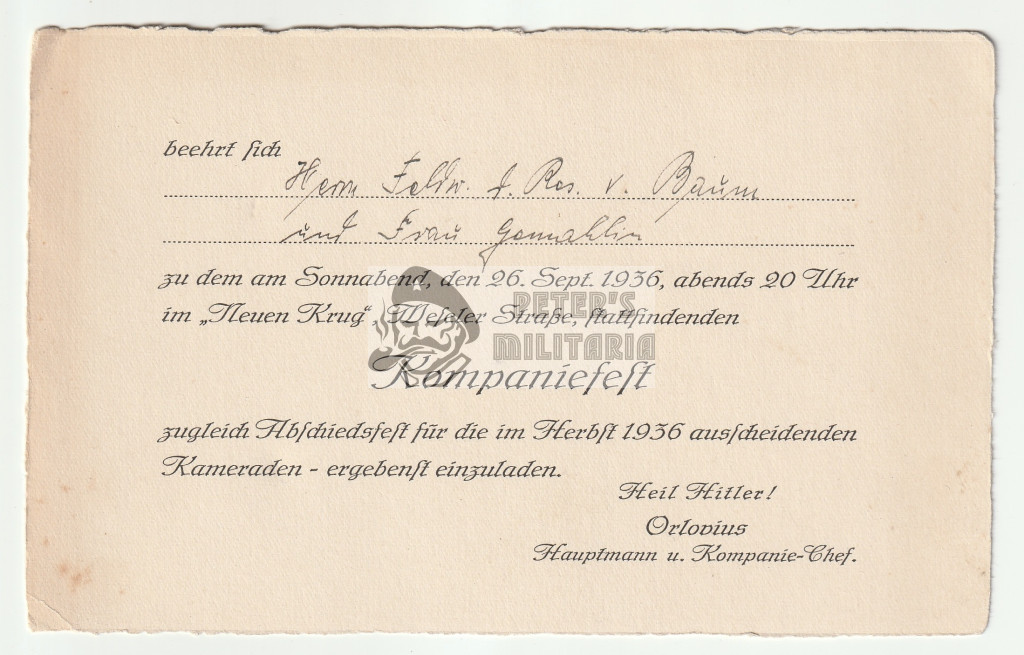 beehrt sich
Herrn Feldw. d. Res. v. Baum
und Frau Gemahlin
zu dem am Sonnabend, den 26. Sept. 1936, abends 20 Uhr
im „Neuen Krug“, Weseler Straße, stattfindenden
PETER'S
MILITARIA
Kompaniefest
zugleich Abschiedsfest für die im Herbst 1936 ausscheidenden
Kameraden - ergebenst einzuladen.
Heil Hitler!
Orlovius
Hauptmann u. Kompanie-Chef.